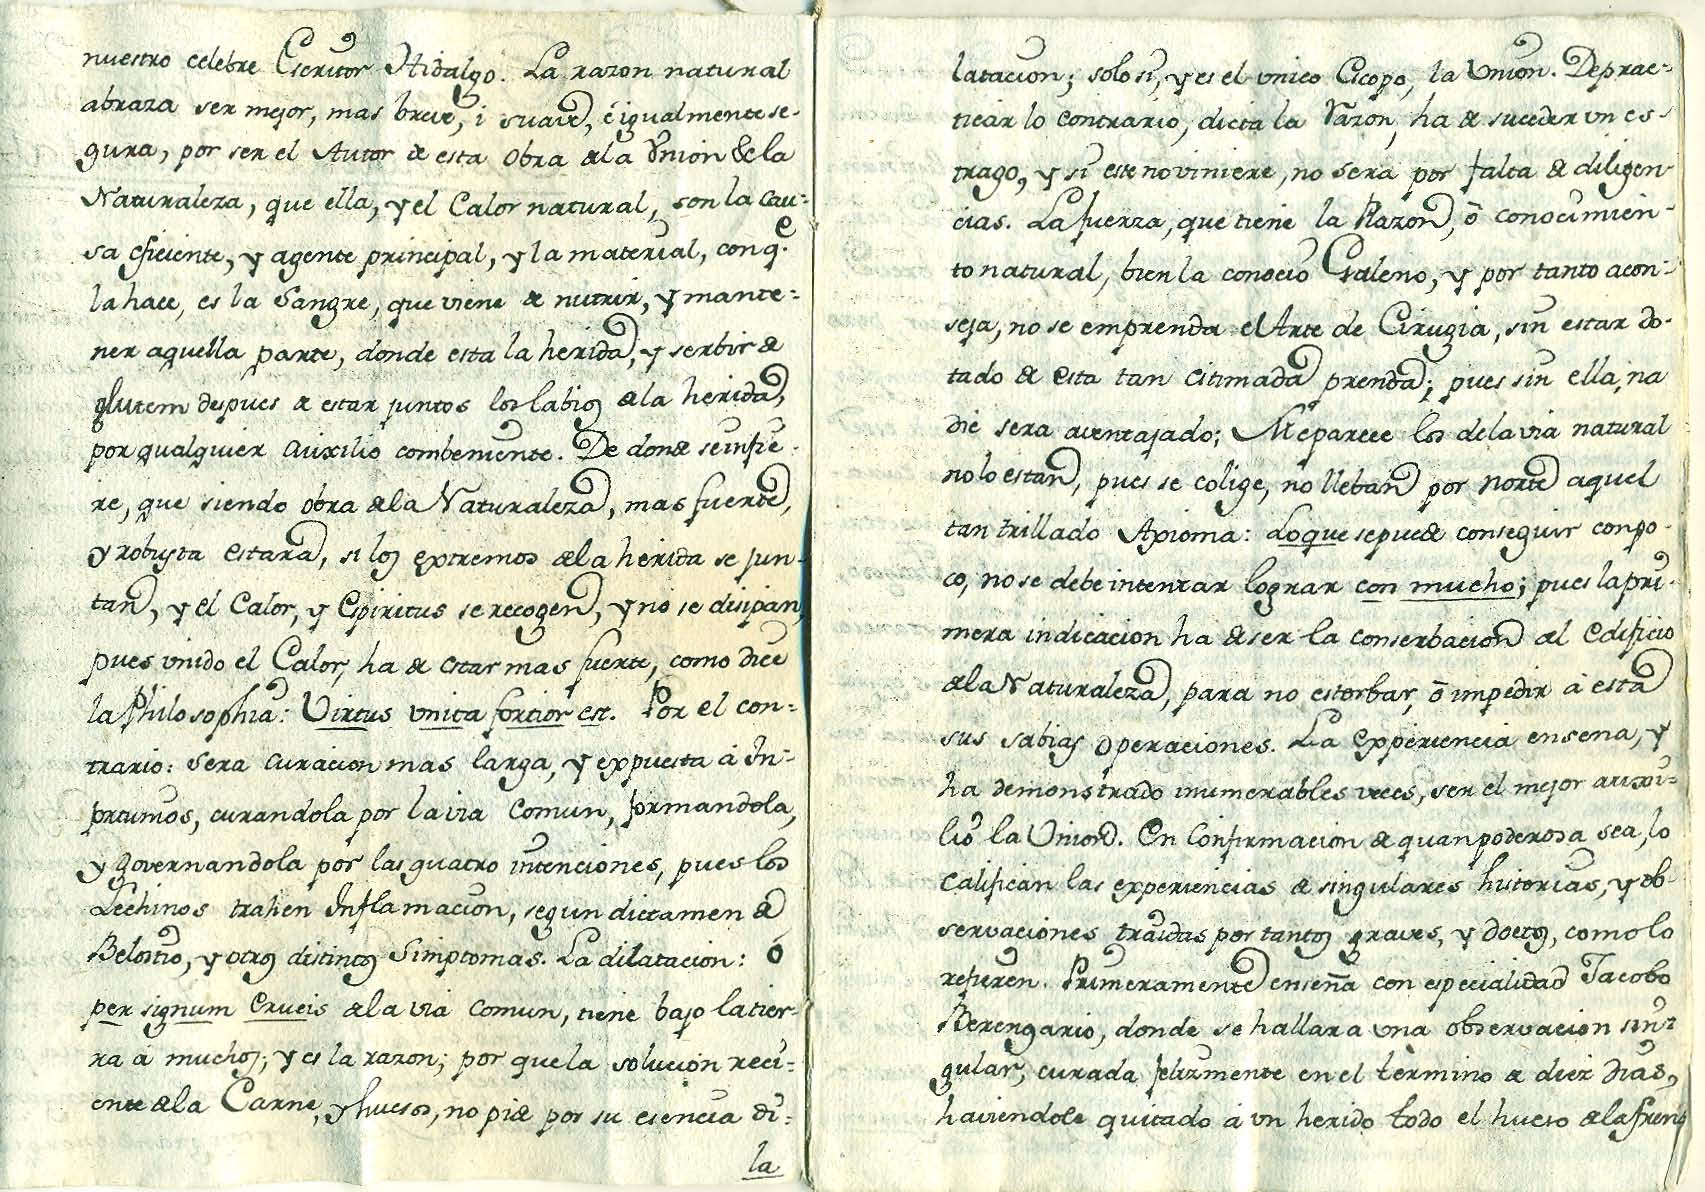 nuestro celebre Escritor Hidalgo. La razon natural
abraza ser mejor, mas breve, i suave, è igualmente se-
gura, por ser el Autor de esta obra de la Vnion de la
Naturaleza, que ella, y el Calor natural, son la cau-
sa eficiente, y agente principal, y la material, con q.e
la hace, es la Sangre, que viene de nutrir, y mante-
ner aquella parte, donde esta la herida, y serbir de
glutem despues de estar juntos los labios de la herida,
por qualquier auxilio combeniente. De donde se infie-
re, que siendo obra de la Naturaleza, mas fuerte,
y robusta estara, si los extremos de la herida se jun-
tan, y el Calor, y Espiritus se recogen, y no se disipan,
pues vnido el Calor, ha de estar mas fuerte, como dice
la Philosophia: Virtus vnita fortior est. Por el con-
trario: sera curacion mas larga, y expuesta à In-
curandola por la via comun, formandola,
y governandola por las quatro intenciones, pues los
Lechinos trahen Inflamacion, segun dictamen de
Belostio, y otros distintos Simptomas. La dilatacion: ó
per signum Crucis de la via comun, tiene bajo la tier-
ra á muchos; y es la razon; por que la solucion reci-
ente de la Carne, y huesos, no pide por su esencia di-
la
latacion; solo si, y es el vnico Escopo, la Vnion. De prac-
ticar lo contrario, dicta la Razon, ha de suceder vn es-
trago, y si este no viniere, no sera por falta de diligen-
cias. La fuerza, que tiene la Razon, ò conocimien-
to natural, bien la conociò Galeno, y por tanto acon-
seja, no se emprenda el Arte de Cirugia, sin estar do-
tado de esta tan estimada prenda; pues sin ella, na
die sera aventajado; Me parece los de la via natural
no lo estan, pues se colige, no lleban por norte aquel
tan trillado Axioma: Lo que se puede conseguir con po-
co, no se debe intentar lograr con mucho; pues la pri-
mera indicacion ha de ser la conserbacion del edificio
de la Naturaleza, para no estorbar, ò impedir à esta
sus sabias operaciones. La experiencia ensena, y
ha demonstrado inumerables veces, ser el mejor auxi-
lio la Vnion. En Confirmacion de quan poderosa sea, lo
califican las experiencias de singulares historias, y ob-
servaciones traidas por tantos graves, y doctos, como lo
refieren. Primeramente enseña con especialidad Jacobo
Berengario, donde se hallara vna observacion sin-
gular, curada felizmente en el termino de diez dias,
haviendole quitado à vn herido todo el hueso de la frente